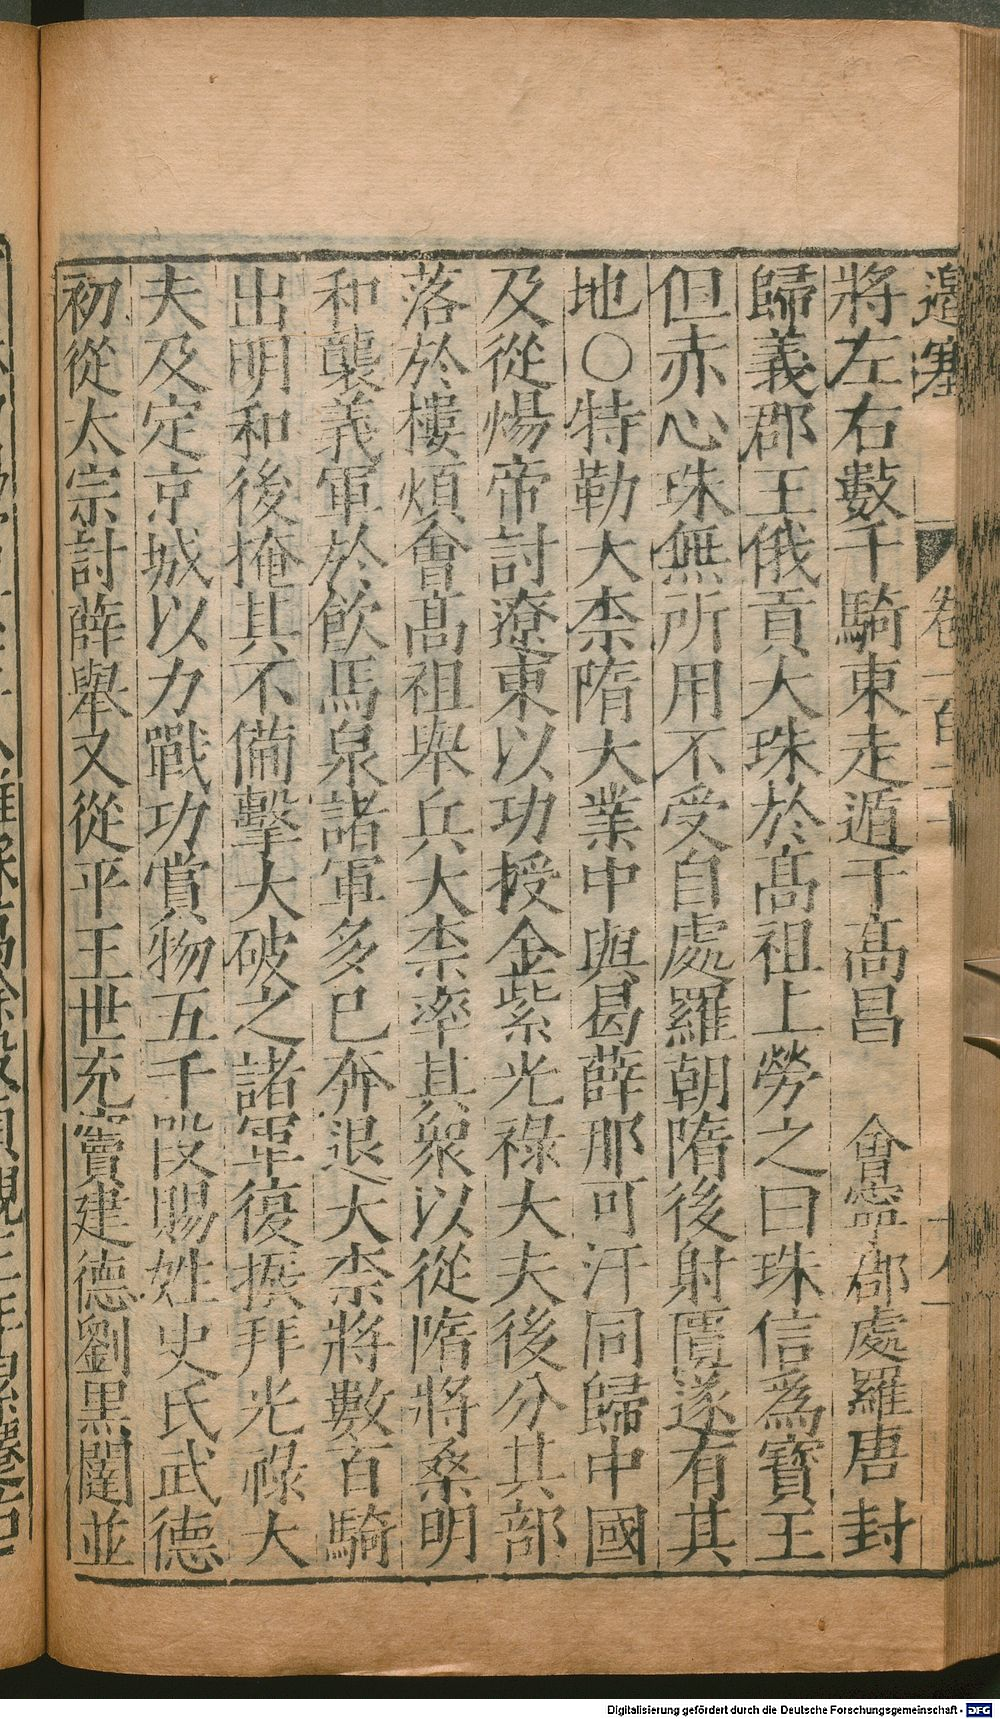 邊塞 卷二百
將左右數千騎東走遁千髙昌 會寧郡處羅唐封
歸義郡王俄貢大珠於髙祖上勞之曰珠信爲寶王
但赤心珠無所用不受自處羅朝隋後射匱遂有其
地○特勒大柰隋大業中與曷薛那可汗同歸中國
及從煬帝討遼東以功授金紫光禄大夫後分其部
落於樓煩會髙祖舉兵大柰率其衆以從隋將桑明
和襲義軍於飲馬泉諸軍多已奔退大柰將數百騎
出明和後掩其不備擊大破之諸軍復振拜光禄大
夫及定京城以力戰功賞物五千段賜姓史氏武德
初從太宗討薛舉又從平王世充竇建德劉黒闥並
Digitalisierung gefördert durch die Deutsche Forschungsgemeinschaft - DFG